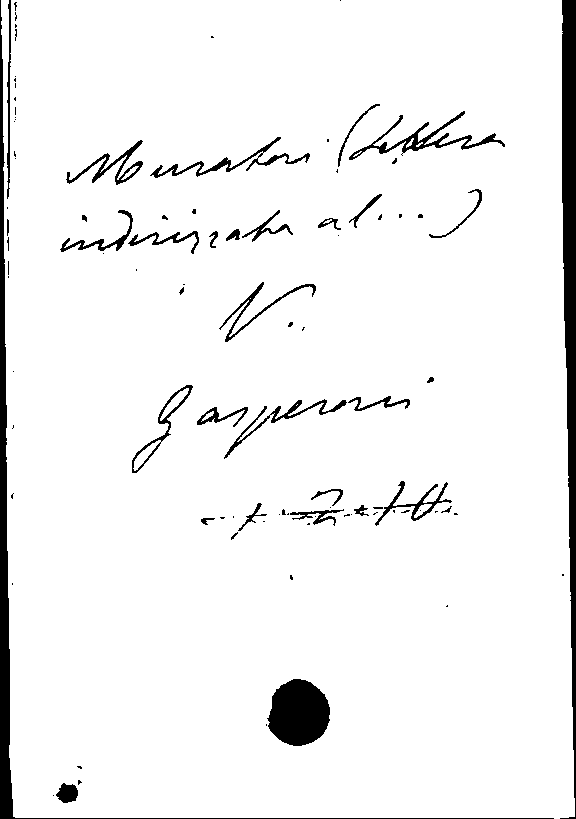 Muratori (Lettera
indirizzata al...)
V.
Gasperoni